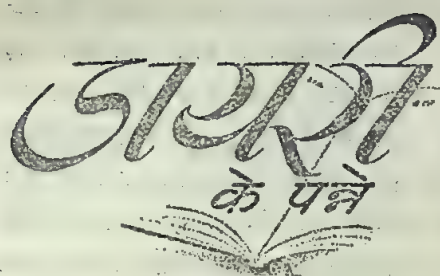 डायरी
के पन्ने